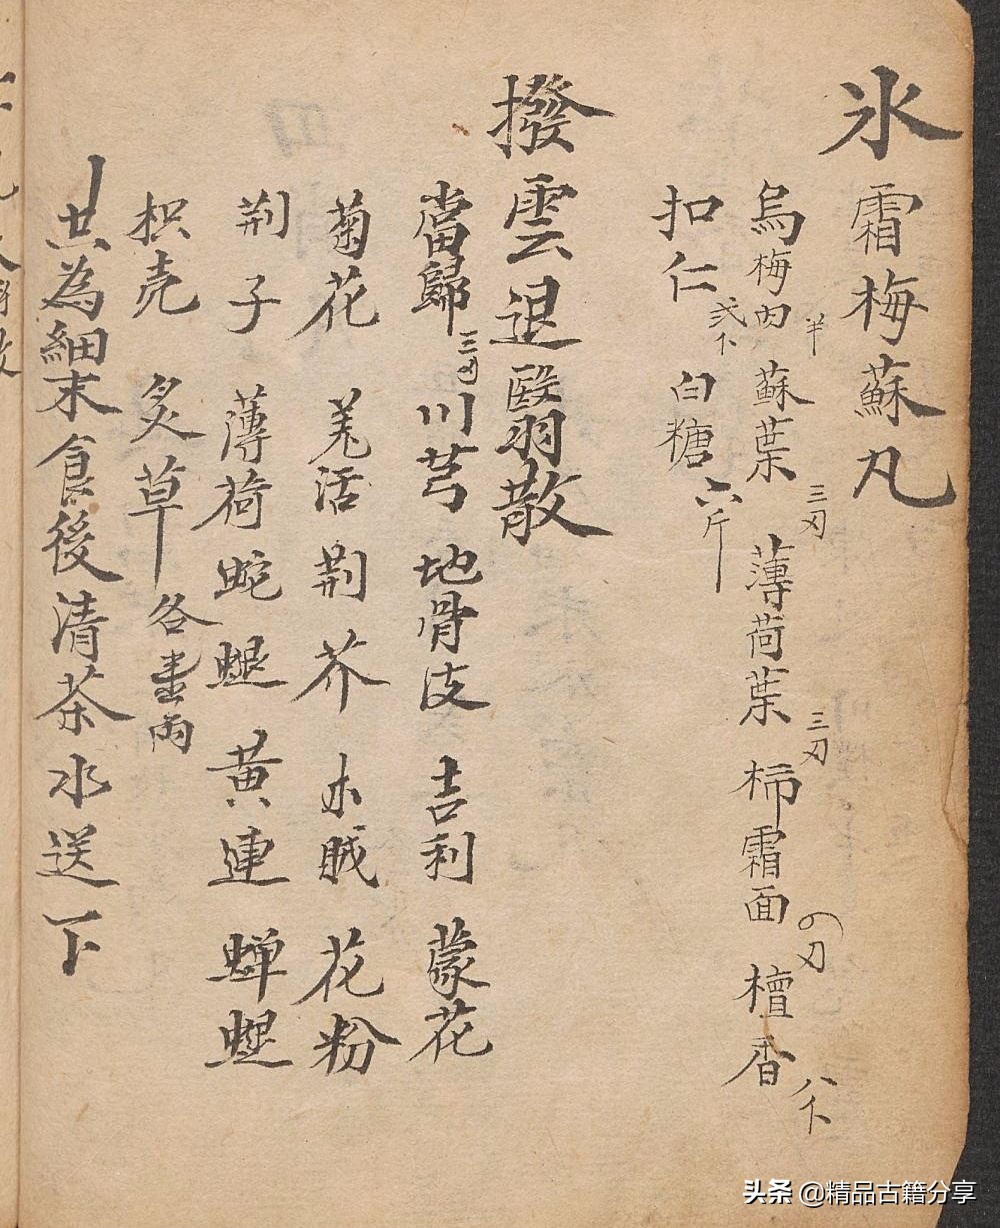 氷霜梅蘇丸
烏梅肉 半 蘇葉 三刃 薄荷葉 三刃 柿霜面 刃 檀香 八
扣仁 弍 白糖 六斤
撥雲退翳散
當歸 三 川芎 地骨皮 吉利 蒙花
菊花 羌活 荆芥 木賊 花粉
荆子 薄荷 蛇蜕 黄連 蝉蜕
枳壳 炙草 各壹両
共為細末食後清茶水送下
头条 @精品古籍分享